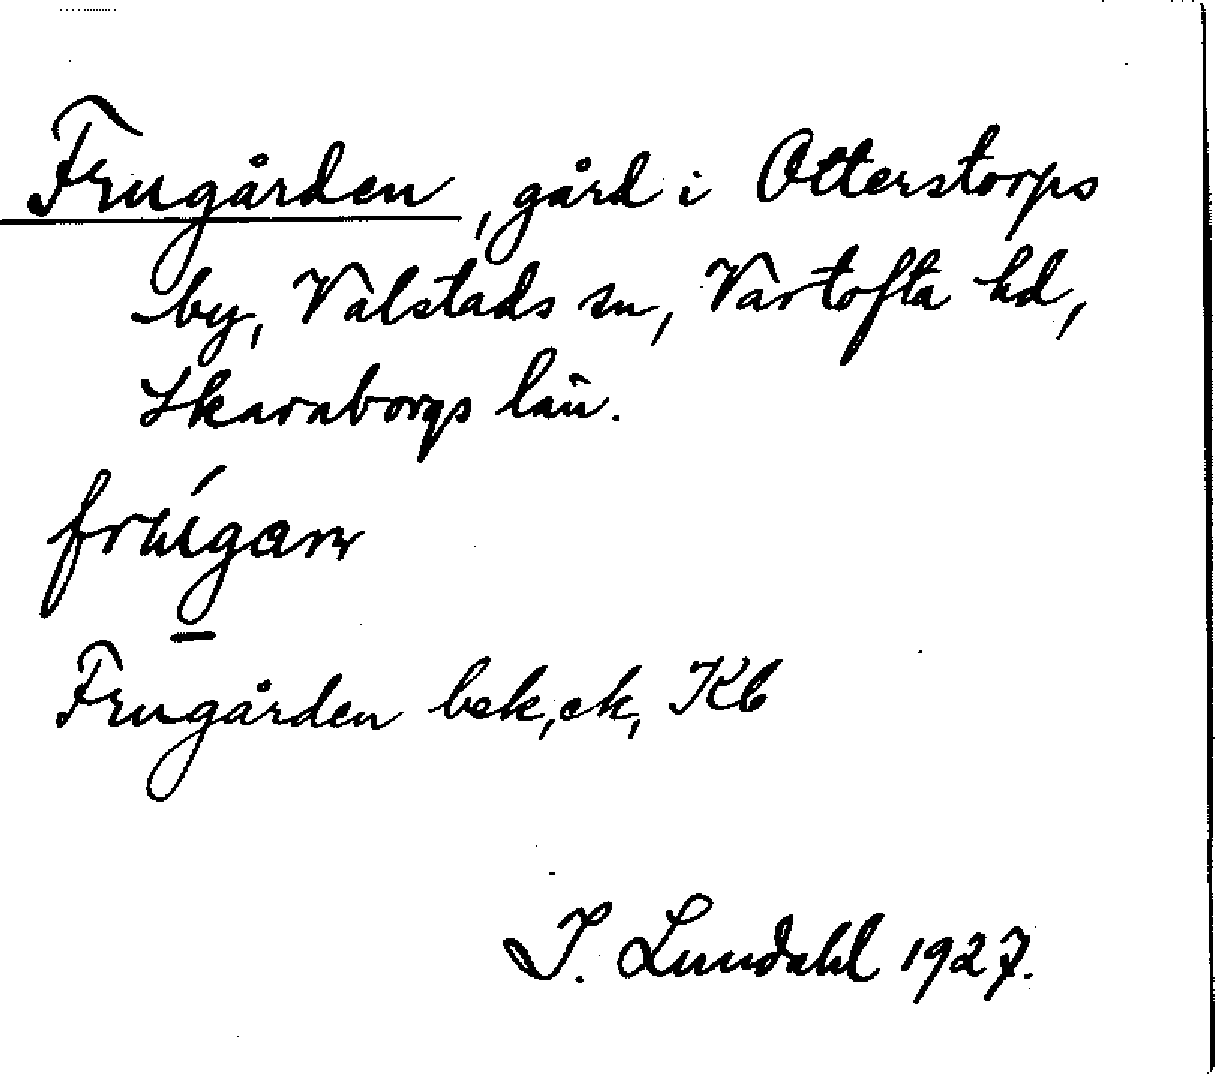 Frugården, gård i Otterstorps
by, Valstads sn, Vartofta hd,
Skaraborgs län.
frúgarɳ
Frugården bek, ek, Kb
I. Lundahl 1927.